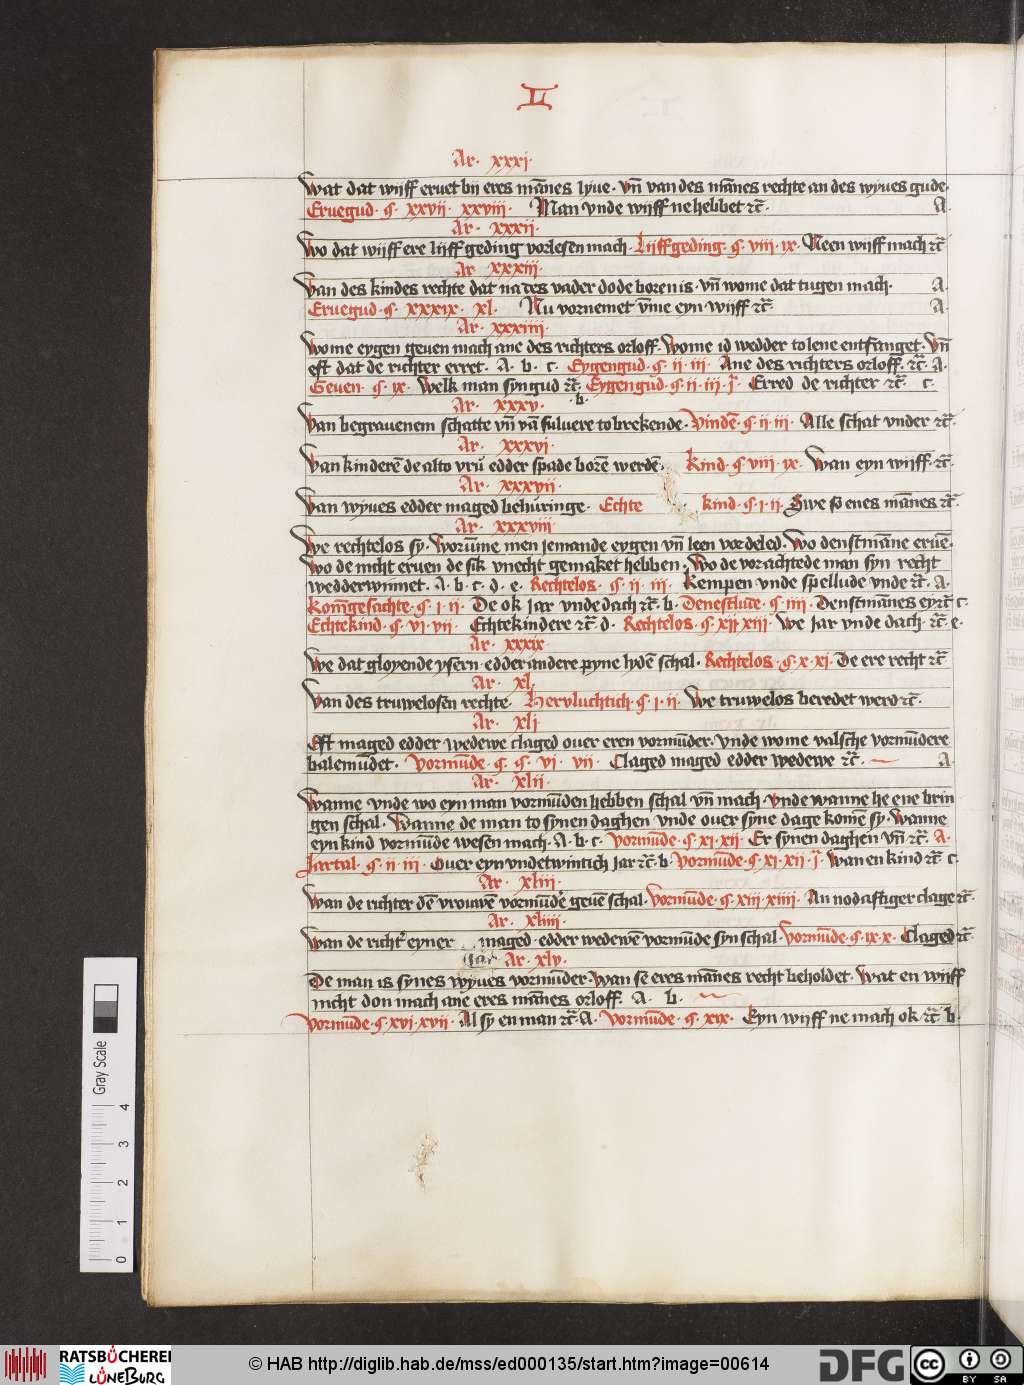 II
Ar. xxxi.
Wat dat wijff eruet bij eres mānes lyue. vn̄ van des mānes rechte an des wyues gude.
Eruegud. q. xxvii. xxviii. Man vnde wiiff ne hebbet ꝛc̄. A.
Ar. xxxii.
Wo dat wiiff ere liiff geding vorlesen mach. Liiffgeding. q. viii. ix. Neen wiiff mach ꝛc̄
Ar. xxxiii.
Van des kindes rechte dat na des vader dode boren is. vn̄ wo me dat tugen mach. A.
Eruegud. q. xxxix. xl. Nu vornemet vm̄e eyn wijff ꝛc̄. A.
Ar. xxxiiii.
Wo me eygen geuen mach ane des richters orloff. Wo me id wedder to lene entfanget. Vn̄
eft dat de richter erret. A. b. c. Eygengud. q. ii. iii. Ane des richters orloff. ꝛc̄. A.
Geuen. q. ix. Welk man syn gud ꝛc̄. Eygengud. q. ii. iii. Erred de richter ꝛc̄. c.
Ar. xxxv. b.
Van begrauenem schatte vn̄ vā suluere to brekende. Vindē. q. ii. iii. Alle schat vnder ꝛc̄.
Ar. xxxvi.
Van kinderē de alto vrū edder spade borē werdē. Kind. q. viii. ix. Wan eyn wijff. ꝛc̄.
Ar. xxxvii.
Van wyues edder maged behuringe. Echte kind. q. i. ii. Swe so enes mānes ꝛc̄.
Ar. xxxviii.
We rechtelos sy. Worūme men jemande eygen vn̄ leen vordeled. Wo denstmāne eruē.
Wo de nicht eruen de sik vnecht gemaket hebben. Wo de vorachtede man syn recht
wedderwinnet. A. b. c. d. e. Rechtelos. q. ii. iii. Kempen vnde spellude vnde ꝛc̄. A.
Kom̄gesachte. q. i. ii. De ok jar vnde dach ꝛc̄. b. Denestlude. q. iiii. Denstmānes ey ꝛc̄ c.
Echtekind. q. vi. vii. Echtekindere ꝛc̄. d. Rechtelos. q. xii xiii. We jar vnde dach. ꝛc̄. e.
Ar. xxxix
We dat gloyende ysern. edder andere pyne lydē schal. Rechtelos. q. x. xi. De ere recht ꝛc̄
Ar. xl.
Van des truwelosen rechte. Hervluchtich. q. i. ii. We truwelos beredet werd ꝛc̄.
Ar. xli
Eft maged edder wedewe claged ouer eren vormūder. vnde wo me valsche vormūdere
balemūdet. Vormūde. q. q. vi. vii. Claged maged edder wedewe ꝛc̄. A.
Ar. xlii.
Wanne vnde wo eyn man vormūden hebben schal vn̄ mach. vnde wanne he ene brin
gen schal. Wanne de man to synen daghen vnde ouer syne dage komē sy. Wanne
eyn kind vormūde wesen mach. A. b. c. Vormūde. q. xi. xii. Er synen daghen vn̄ ꝛc̄. A.
Jartal. q. ii. iii. Ouer eyn vndetwintich jar ꝛc̄. b. Vormūde. q. xi. xii. Wan en kind ꝛc̄ c.
Ar. xliii.
Wan de richter dē vrouwē vormūdē geuē schal. Vormūde. q. xiii. xiiii. An nodaftiger clage ꝛc̄.
Ar. xliiii.
Wan de richt' eyner maged. edder wedewē vormūde syn schal. Vormūde. q. ix. x. Claged ꝛc̄.
Ar. xlv.
De man is synes wyues vormūder. Wan se eres mānes recht beholdet. Wat en wijff
nicht don mach ane eres mānes orloff. A. b.
Vormūde. q. xvi. xvii. Al sy en man ꝛc̄. A. Vormūde. q. xix. Eyn wijff ne mach ok ꝛc̄ b.
Gray Scale
0 1 2 3 4
RATSBÜCHEREI
LÜNEBURG
© HAB http://diglib.hab.de/mss/ed000135/start.htm?image=00614
DFG
cc BY SA